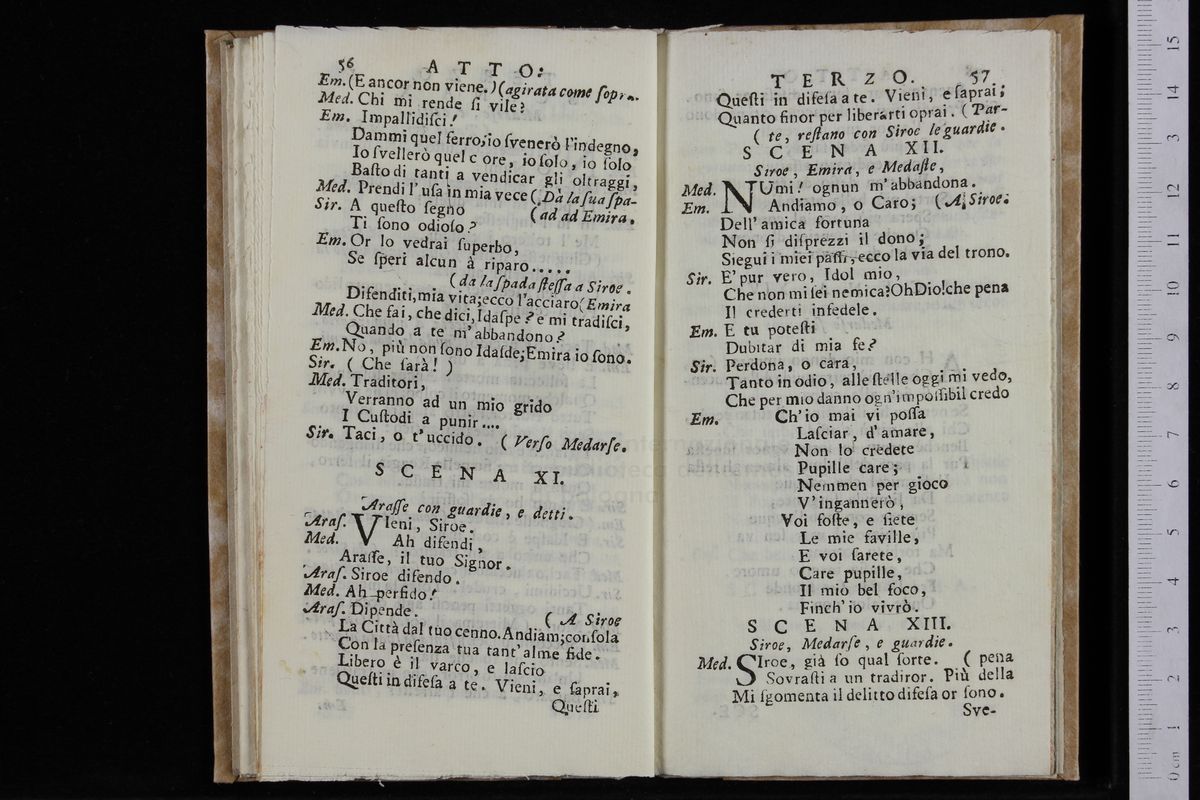 56 A T T O:
Em. (E ancor non viene.)(agirata come ſopra.
Med. Chi mi rende ſi vile?
Em. Impallidiſci!
Dammi quel ferro;io ſvenerò l'indegno,
Io ſvellerò quel c ore, io ſolo, io ſolo
Baſto di tanti a vendicar gli oltraggi,
Med. Prendi l' uſa in mia vece (Dà la ſua ſpa-
Sir. A queſto ſegno (ad ad Emira.
Ti ſono odioſo?
Em. Or lo vedrai ſuperbo,
Se ſperi alcun à riparo.....
(da la ſpada ſteſſa a Siroe.
Difenditi,mia vita;ecco l'acciaro(Emira
Med. Che fai, che dici, Idaſpe? e mi tradiſci,
Quando a te m'abbandono?
Em. No, più non ſono Idaſde;Emira io ſono.
Sir. ( Che ſarà! )
Med. Traditori,
Verranno ad un mio grido
I Cuſtodi a punir....
Sir. Taci, o t'uccido. ( Verſo Medarſe.
S C E N A XI.
Araſſe con guardie, e detti.
Araſ. VIeni, Siroe.
Med. Ah difendi,
Araſſe, il tuo Signor.
Araſ. Siroe difendo.
Med. Ah perfido!
Araſ. Dipende. ( A Siroe
La Città dal tuo cenno.Andiam;conſola
Con la preſenza tua tant'alme fide.
Libero è il varco, e laſcio
Queſti in difeſa a te. Vieni, e ſaprai,
Queſti
T E R Z O. 57
Queſti in difeſa a te. Vieni, e ſaprai;
Quanto finor per liberarti oprai. ( Par-
( te, reſtano con Siroe le guardie.
S C E N A XII.
Siroe, Emira, e Medaſſe,
Med. NUmi! ognun m'abbandona.
Em. Andiamo, o Caro; (A Siroe.
Dell'amica fortuna
Non ſi diſprezzi il dono;
Siegui i miei paſſi,ecco la via del trono.
Sir. E' pur vero, Idol mio,
Che non mi ſei nemica?OhDio!che pena
Il crederti infedele.
Em. E tu poteſti
Dubitar di mia fe?
Sir. Perdona, o cara,
Tanto in odio, alle ſtelle oggi mi vedo,
Che per mio danno ogn'impoſſibil credo
Em. Ch'io mai vi poſſa
Laſciar, d'amare,
Non lo credete
Pupille care;
Nemmen per gioco
V'ingannerò,
Voi foſte, e ſiete
Le mie faville,
E voi ſarete,
Care pupille,
Il mio bel foco,
Finch'io vivrò.
S C E N A XIII.
Siroe, Medarſe, e guardie.
Med. SIroe, già ſo qual ſorte. ( pena
Sovraſti a un tradiror. Più della
Mi ſgomenta il delitto difeſa or ſono.
Sve-